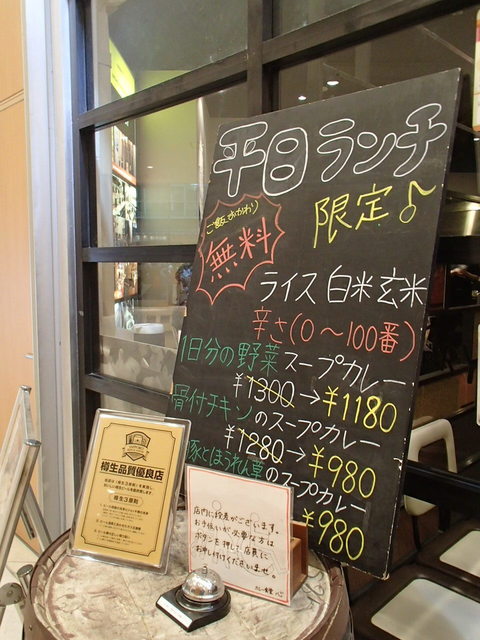 平日ランチ
限定♪
ご飯おかわり
無料
ライス 白米 玄米
辛さ(0〜100番)
1日分の野菜スープカレー
¥1300→¥1180
骨付チキンのスープカレー
¥1280→¥980
豚とほうれん草のスープカレー
¥980
樽生品質優良店
樽生3原則
店内に段差がございます。
お手伝いが必要な方は
ボタンを押して店員に
お申し付けくださいませ。